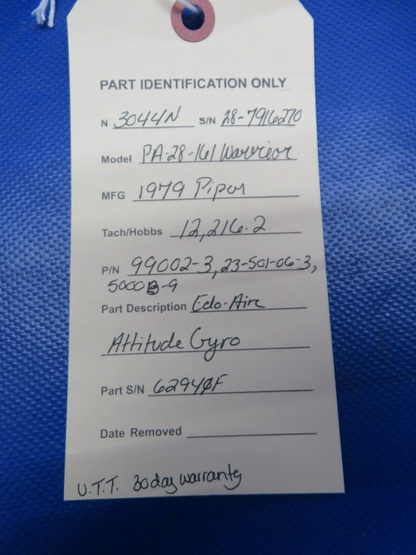 PART IDENTIFICATION ONLY
N 3044N S/N 28-7916270
Model PA-28-161 Warrior
MFG 1979 Piper
Tach/Hobbs 12,216.2
P/N 99002-3, 23-501-06-3,
5000B-9
Part Description Edo-Aire
Attitude Gyro
Part S/N 62940F
Date Removed
U.T.T. 30 day warranty